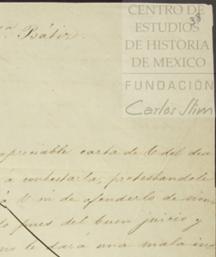 CENTRO DE
ESTUDIOS
DE HISTORIA
DE MEXICO
FUNDACIÓN
Carlos Slim
38
apreciable carta de U. del dia
á contestarla, protestandole
á U. ni de ofenderlo de
pues del buen juicio y
no le dará una mala